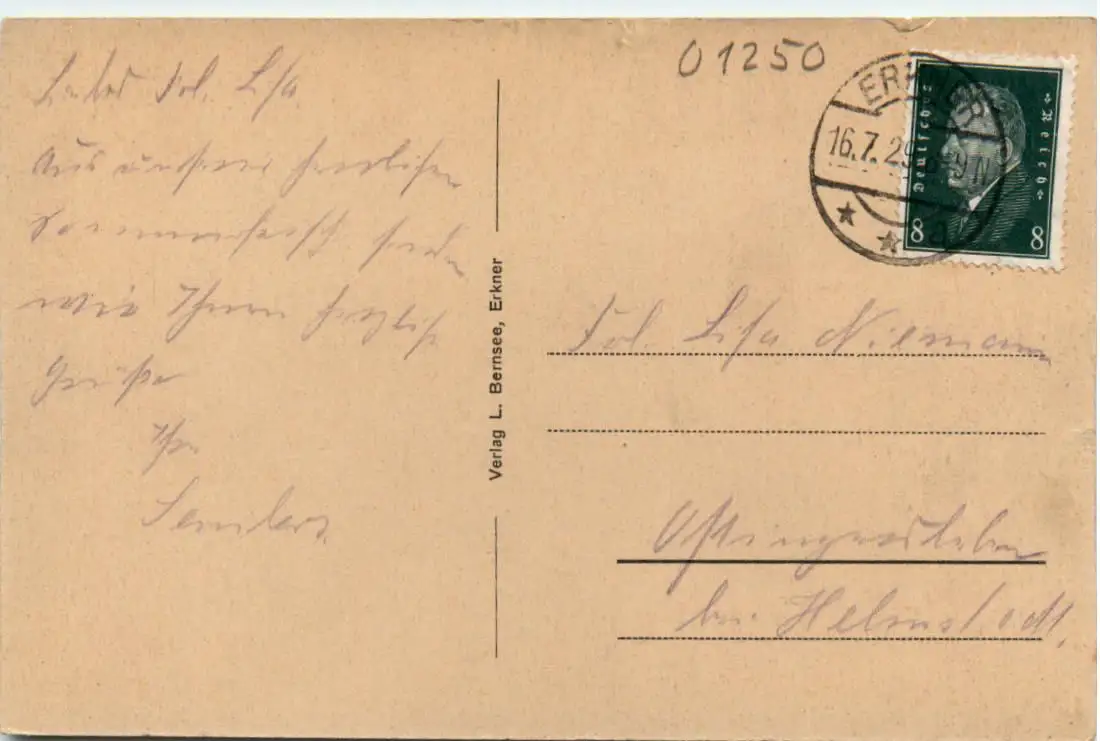 01250
ERKNER
16.7.29. 8-9 N
a
Deutsches Reich
8 8
Liebes Frl. Lisa.
Aus unserer herrlichen
Sommerfrische senden
wir Ihnen herzliche
Grüße
Ihre
Verlag L. Bernsee, Erkner
Frl. Lisa Niemann
Ostingersleben
bei Helmstedt.